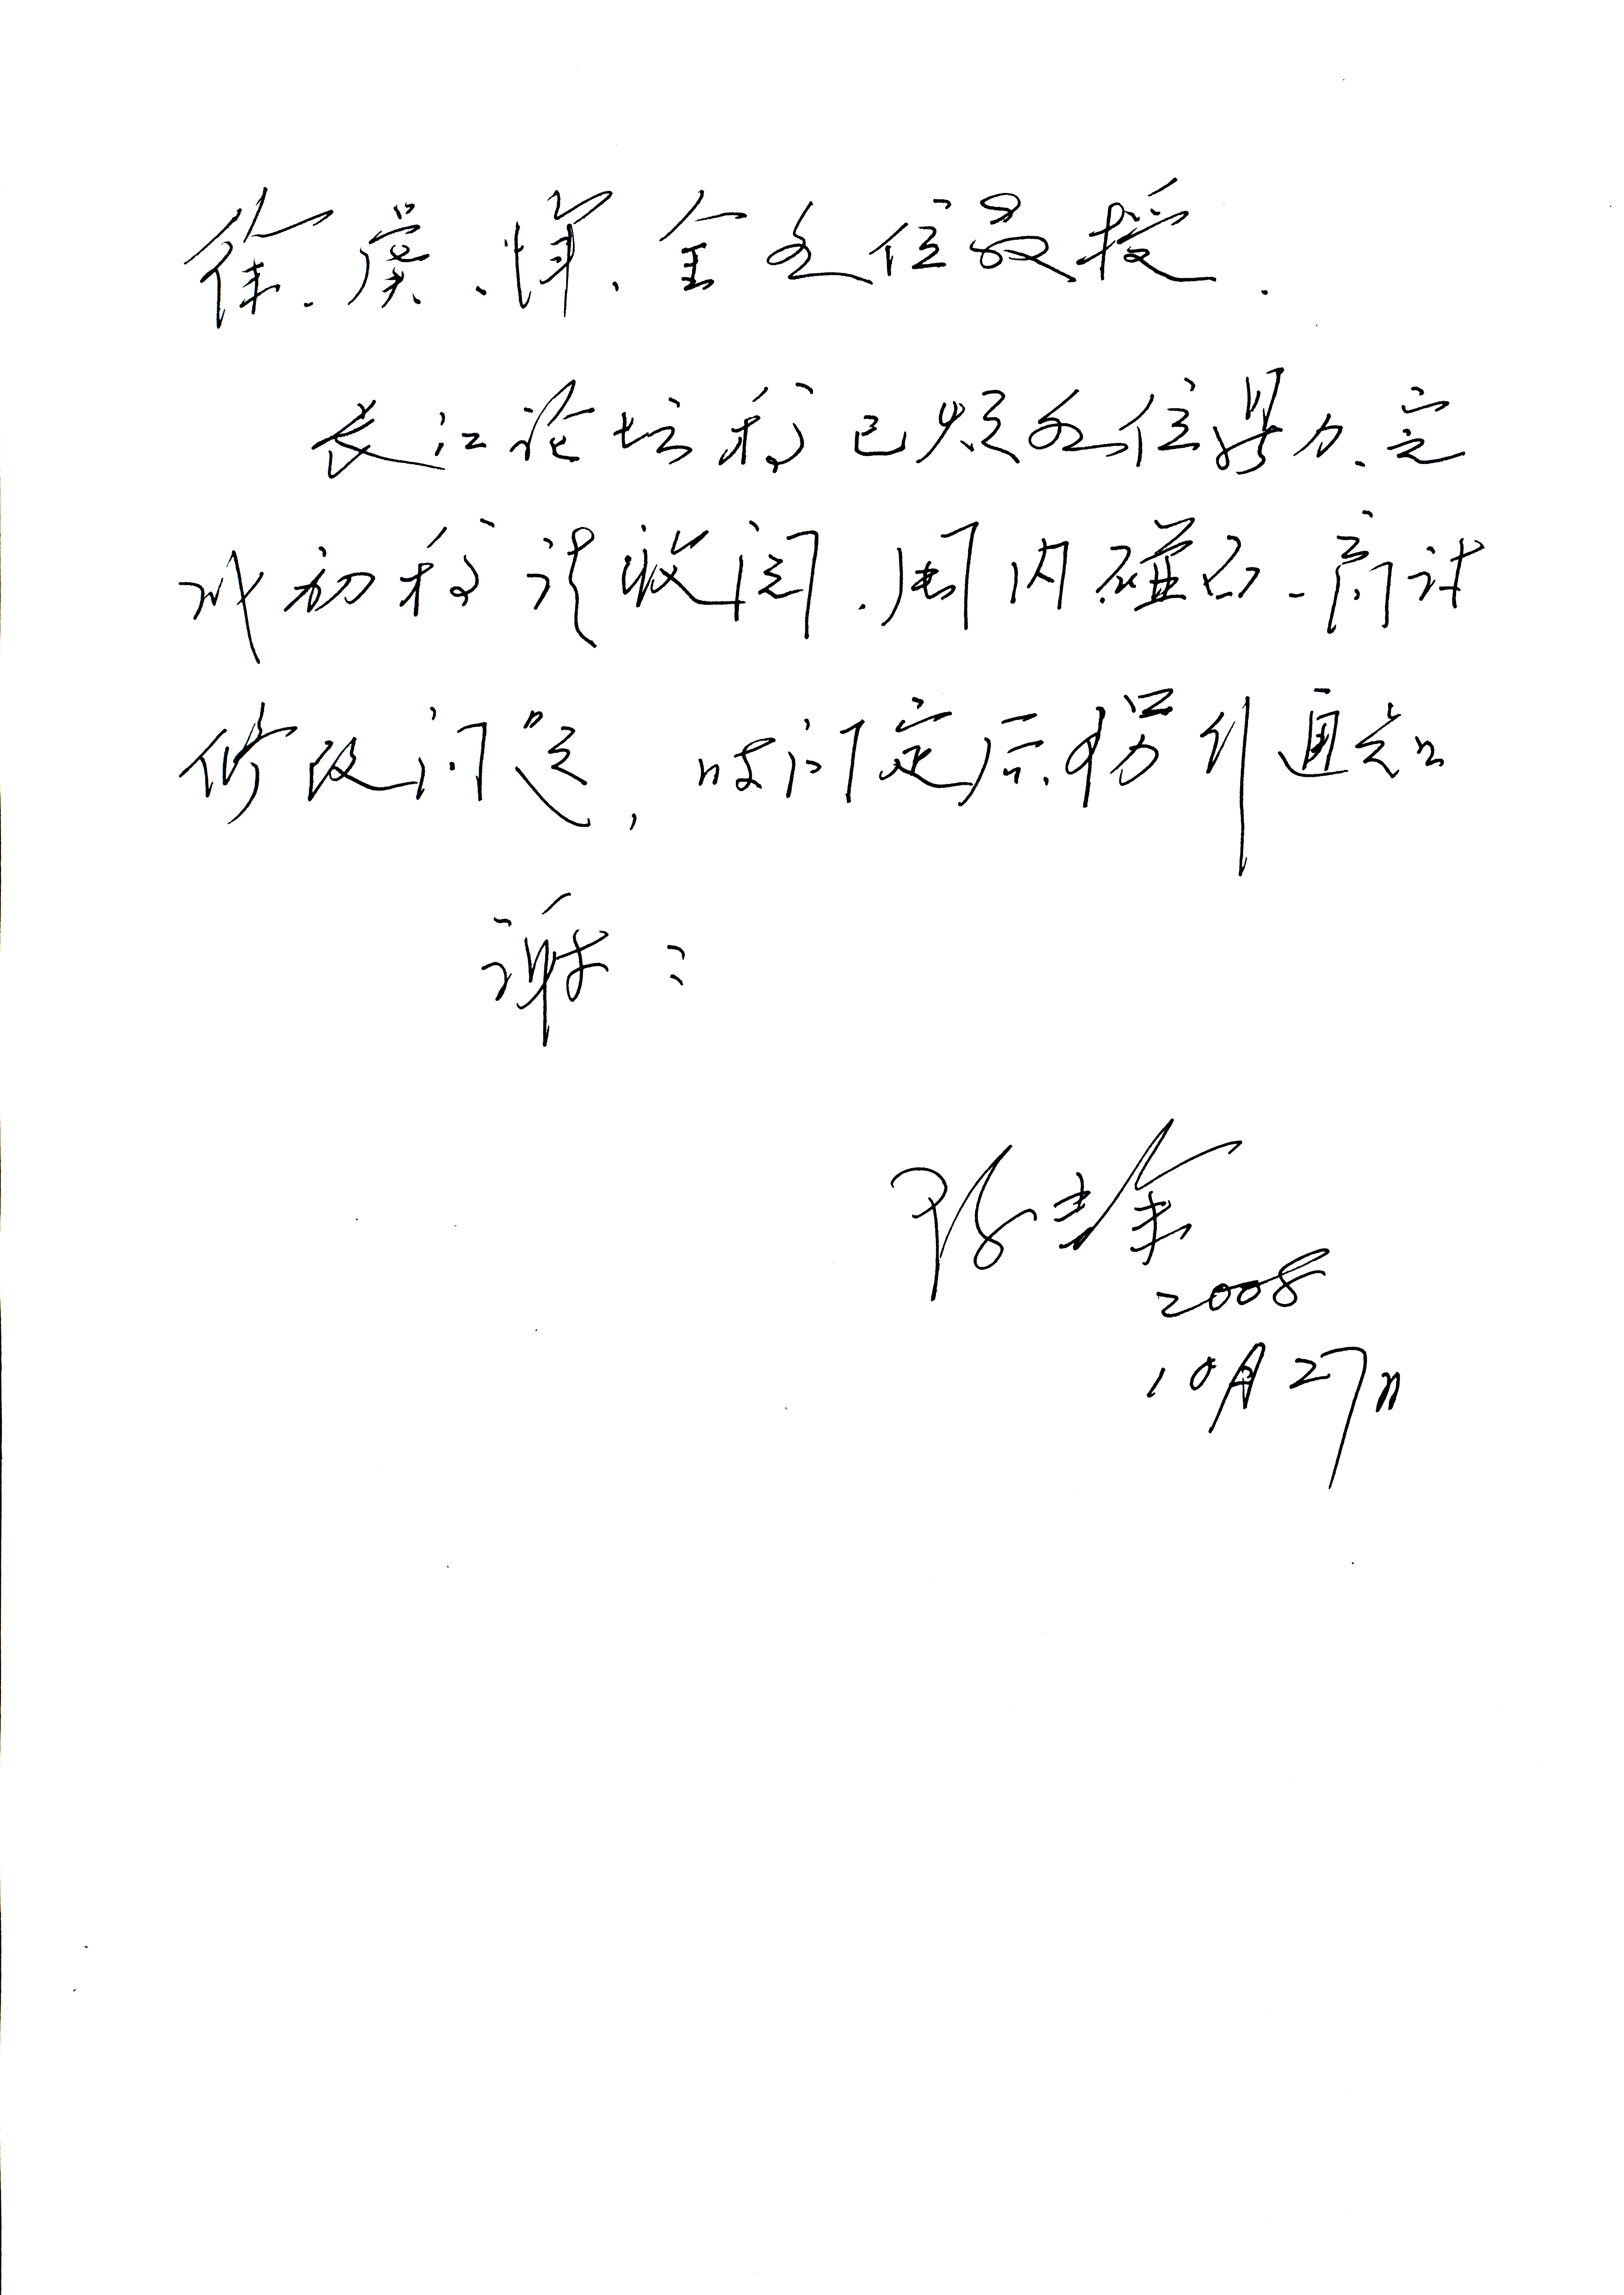 徐、虞、恽、金各位教授.
长江论坛稿已烦各位鼎力、完
成初稿请收阅.周内碰面-商讨
修改问题,时间定后、另行通知
谢谢
陈吉余
2008
10月27日